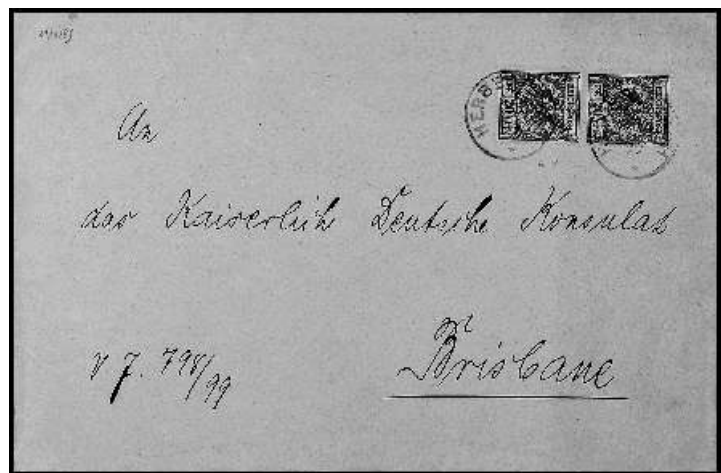 HERBE
An
das Kaiserlich Deutsche Konsulat
in
Brisbane
J. 798/99